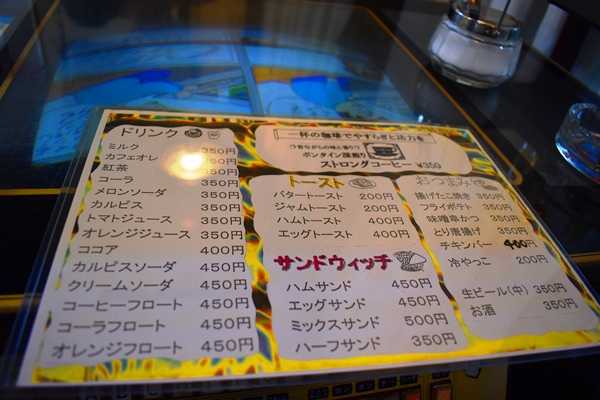 ドリンク
ミルク 350円
カフェオレ 350円
紅茶 350円
コーラ 350円
メロンソーダ 350円
カルピス 350円
トマトジュース 350円
オレンジジュース 350円
ココア 400円
カルピスソーダ 450円
クリームソーダ 450円
コーヒーフロート 450円
コーラフロート 450円
オレンジフロート 450円
一杯の珈琲でやすらぎと活力を
ストロングコーヒー ¥350
トースト
バタートースト 200円
ジャムトースト 200円
ハムトースト 400円
エッグトースト 400円
サンドウィッチ
ハムサンド 450円
エッグサンド 450円
ミックスサンド 500円
ハーフサンド 350円
おつまみ
揚げたこ焼き 350円
フライポテト 350円
味噌串かつ 350円
とり唐揚げ 350円
チキンバー 400円
冷やっこ 200円
生ビール(中) 350円
お酒 350円